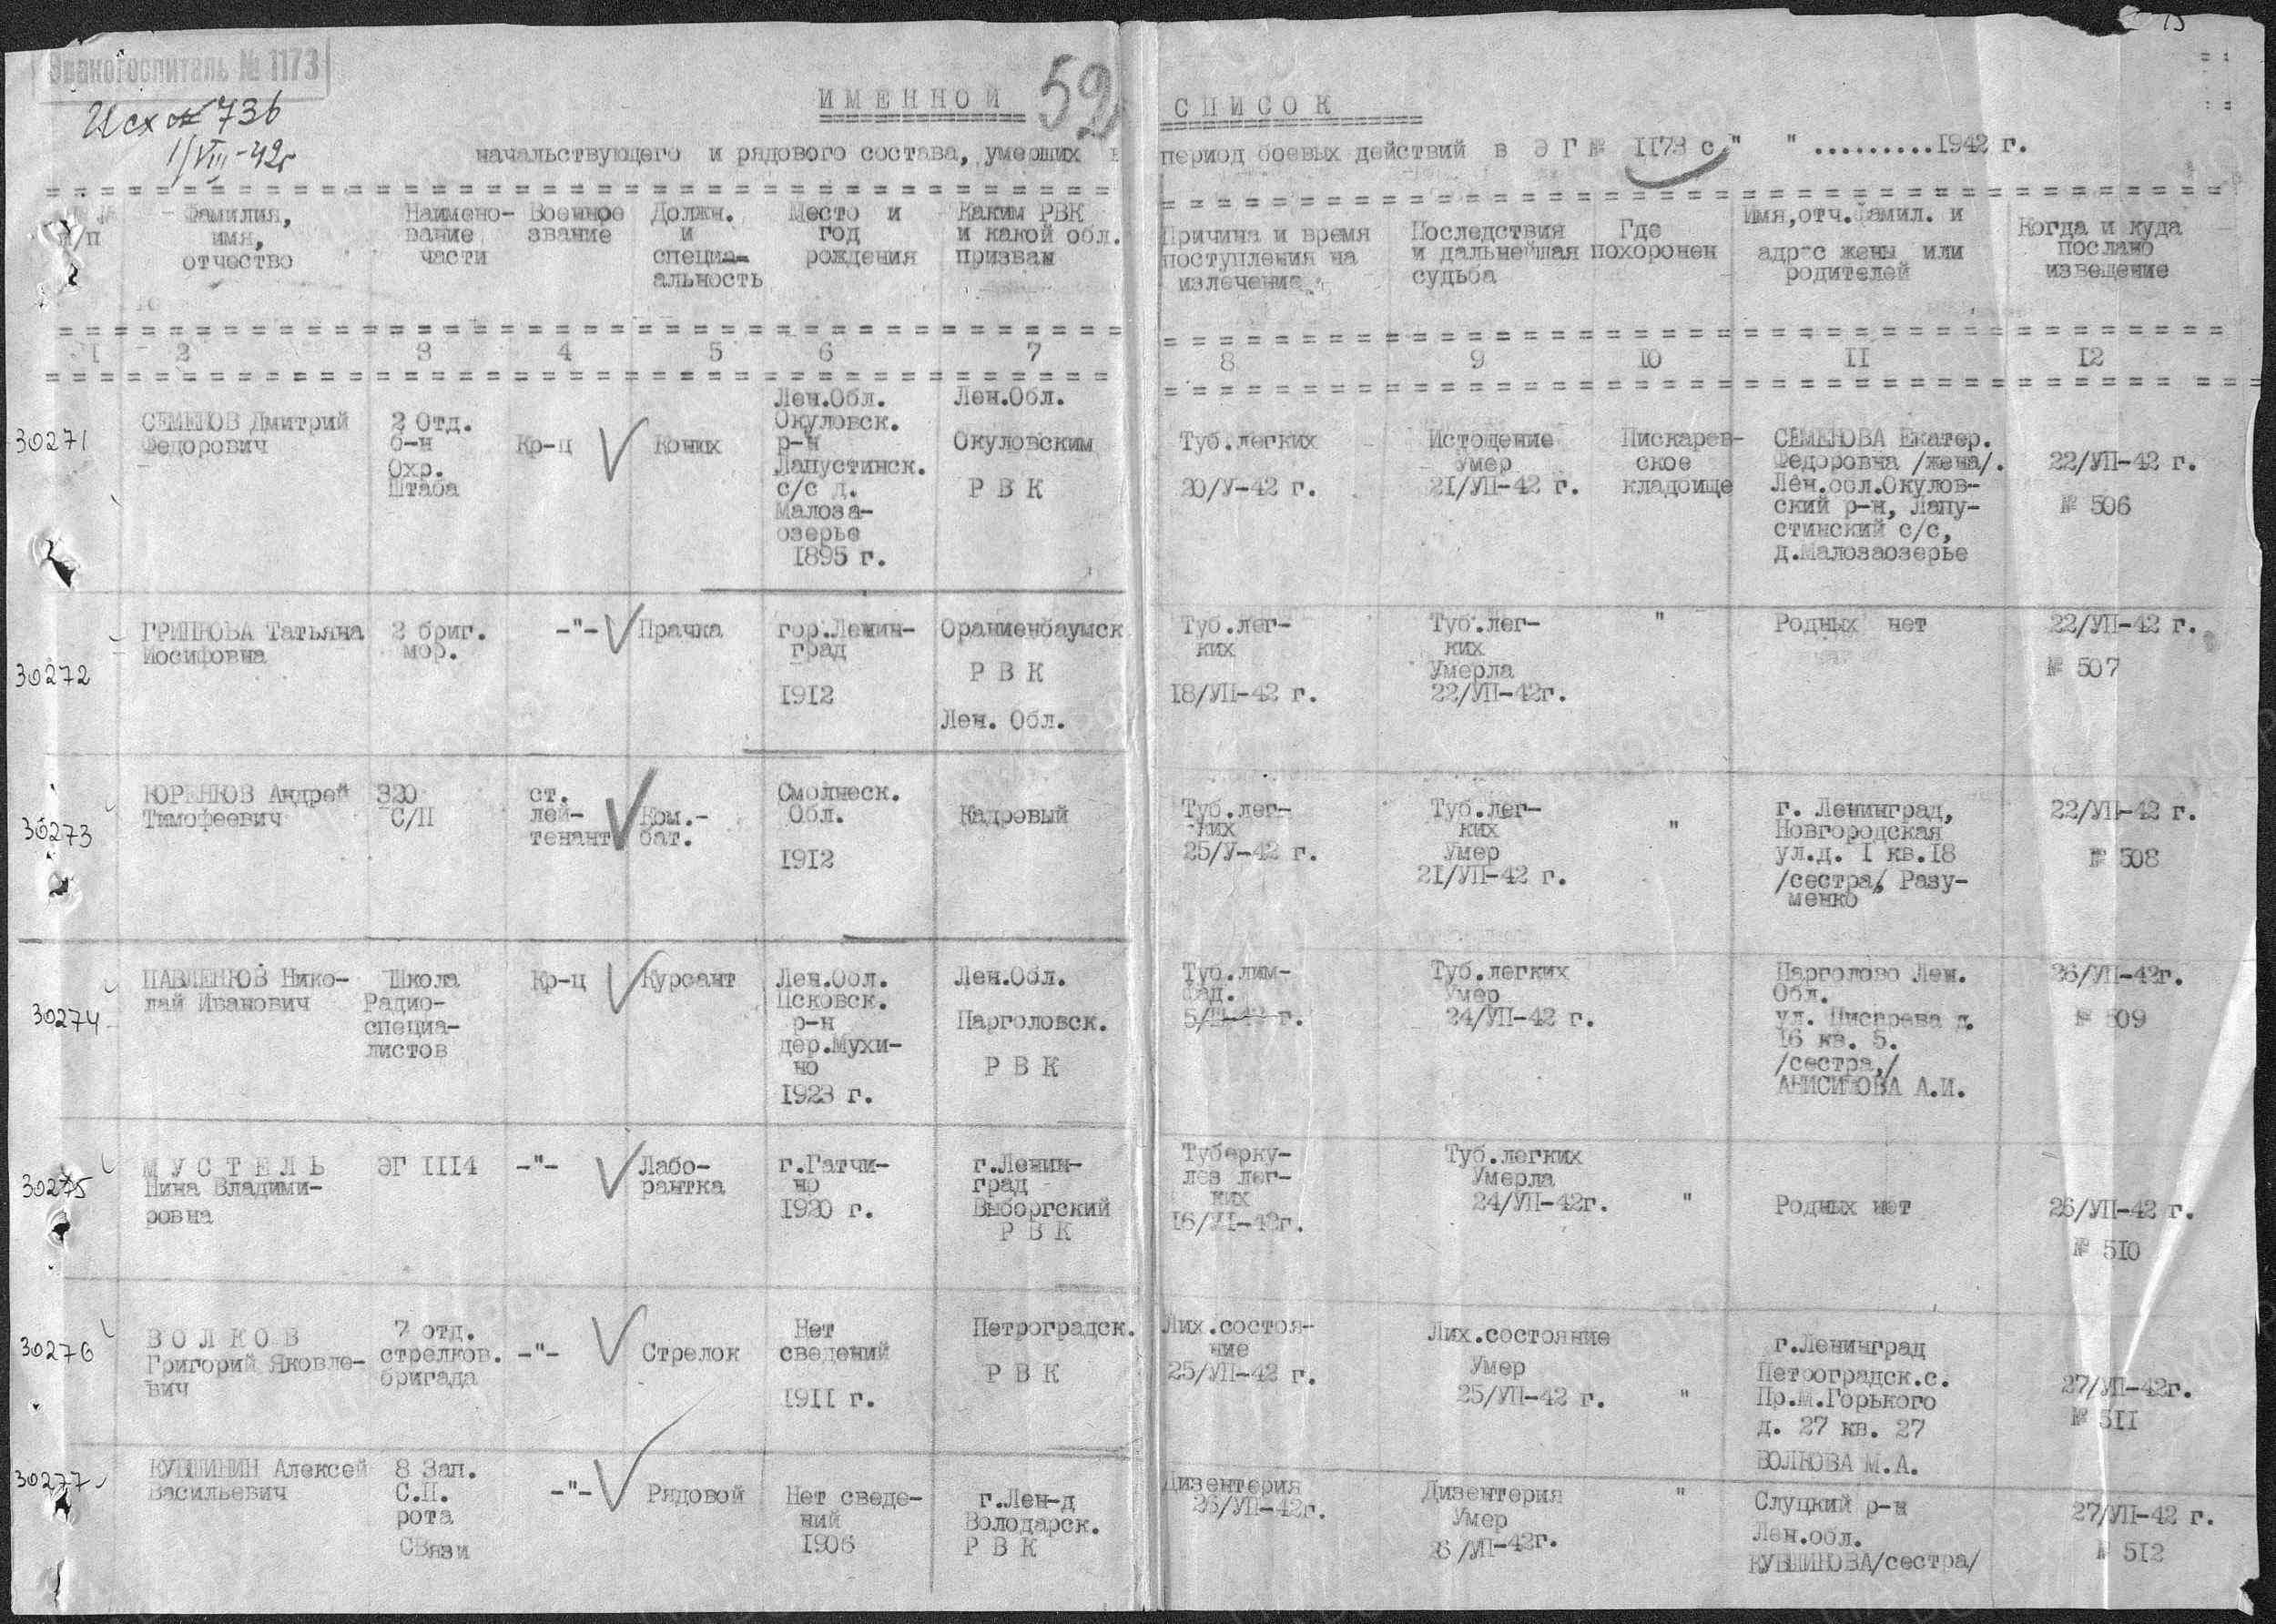 Эвакогоспиталь № 1173
Исх № 736
1/VIII-42г
52
ИМЕННОЙ СПИСОК
начальствующего и рядового состава, умерших в период боевых действий в ЭГ № II73 с " " .........1942 г.
№ №
п/п
Фамилия,
имя,
отчество
Наимено-
вание
части
Военное
звание
Должн.
и
специ-
альность
Место и
год
рождения
Каким РВК
и какой обл.
призван
Причина и время
поступления на
излечение
Последствия
и дальнейшая
судьба
Где
похоронен
Имя,отч.фамил. и
адрес жены или
родителей
Когда и куда
послано
извещение
I 2 3 4 5 6 7 8 9 10 II 12
30271
СЕМЕНОВ Дмитрий
Федорович
2 Отд.
б-н
Охр.
Штаба
Кр-ц
Конюх
Лен.Обл.
Окуловск.
р-н
Лапустинск.
с/с д.
Малоза-
озерье
1895 г.
Лен.Обл.
Окуловским
Р В К
Туб.легких
20/У-42 г.
Истощение
Умер
21/УП-42 г.
Пискарев-
ское
кладбище
СЕМЕНОВА Екатер.
Федоровна /жена/.
Лен.обл.Окулов-
ский р-н, Лапу-
стинский с/с,
д.Малозаозерье
22/УП-42 г.
№ 506
30272
ГРИШНОВА Татьяна
Иосифовна
2 бриг.
мор.
-"-
Прачка
гор.Ленин-
град
1912
Ораниенбаумск
Р В К
Лен. Обл.
Туб.лег-
ких
18/УП-42 г.
Туб.лег-
ких
Умерла
22/УП-42г.
"
Родных нет
22/УП-42 г.
№ 507
30273
ЮРЕНКОВ Андрей
Тимофеевич
320
С/П
ст.
лей-
тенант
Ком.-
бат.
Смоленск.
Обл.
1912
Кадровый
Туб.лег-
ких
25/У-42 г.
Туб.лег-
ких
Умер
21/УП-42 г.
"
г. Ленинград,
Новгородская
ул.д. I кв.18
/сестра/, Разу-
менко
22/УП-42 г.
№ 508
30274
ПАВЛЕНКОВ Нико-
лай Иванович
Школа
Радио-
специа-
листов
Кр-ц
Курсант
Лен.Обл.
Псковск.
р-н
дер.Мухи-
но
1923 г.
Лен.Обл.
Парголовск.
Р В К
Туб.лим-
фад.
Туб.легких
Умер
24/УП-42 г.
Парголово Лен.
Обл.
ул. Писарева д.
16 кв. 5.
/сестра,/
АНИСИМОВА А.И.
26/УП-42г.
№ 509
30275
М У С Т Е Л Ь
Нина Владими-
ровна
ЭГ III4
-"-
Лабо-
рантка
г.Гатчи-
но
1920 г.
г.Ленин-
град
Выборгский
Р В К
Туберку-
лез лег-
ких
16/УI-42г.
Туб.легких
Умерла
24/УП-42г.
"
Родных нет
26/УП-42 г.
№ 510
30276
В О Л К О В
Григорий Яковле-
вич
7 отд.
стрелков.
бригада
-"-
Стрелок
Нет
сведений
1911 г.
Петроградск.
Р В К
Лих.состоя-
ние
25/УП-42 г.
Лих.состояние
Умер
25/УП-42 г.
"
г.Ленинград
Петроградск.с.
Пр.М.Горького
д. 27 кв. 27
ВОЛКОВА М.А.
27/УП-42г.
№ 5II
30277
КУВШИНИН Алексей
Васильевич
8 Зап.
С.П.
рота
СВязи
-"-
Рядовой
Нет сведе-
ний
1906
г.Лен-д
Володарск.
Р В К
Дизентерия
26/УП-42г.
Дизентерия
Умер
26/УП-42г.
"
Слуцкий р-н
Лен.обл.
КУВШИНОВА/сестра/
27/УП-42 г.
№ 512